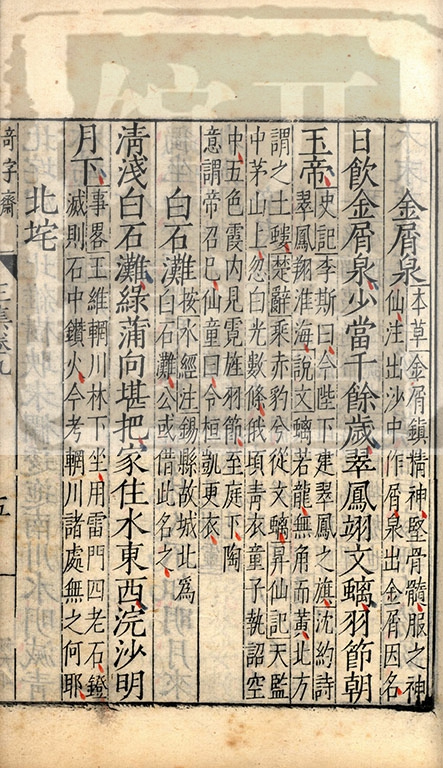 金屑泉
本草金屑鎮精神堅骨髓服之神
仙注出沙中作屑泉出金屑因名
日飲金屑泉少當千餘歲翠鳳翊文螭羽節朝
玉帝
史記李斯曰今陛下建翠鳳之旗沈約詩
翠鳳翔淮海說文螭若龍無角而黃北方
謂之土螻楚辭乘赤豹兮從文螭昇仙記天監
中茅山上忽白光數條俄頃青衣童子執詔空
中五色霞内見霓旌羽節至庭下陶
意謂帝召已仙童曰今桓凱更衣
白石灘
按水經注錫縣故城北爲
白石灘公或借此名之
清淺白石灘綠蒲向堪把家住水東西浣沙明
月下
事畧王維輞川林下坐用雷門四老石鐙
滅則石中鑽火今考輞川諸處無之何耶
北垞
奇字齋
王集卷九
五